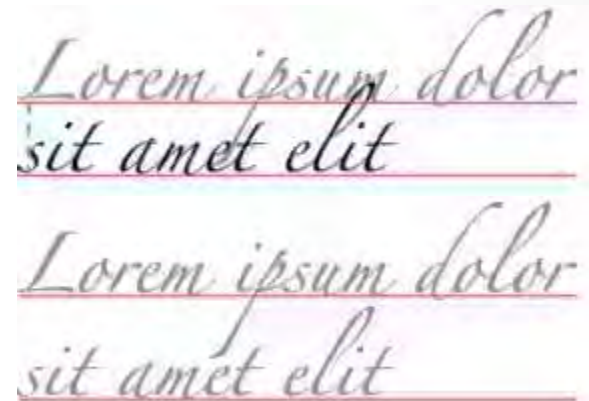 Lorem ipsum dolor
sit amet elit
Lorem ipsum dolor
sit amet elit